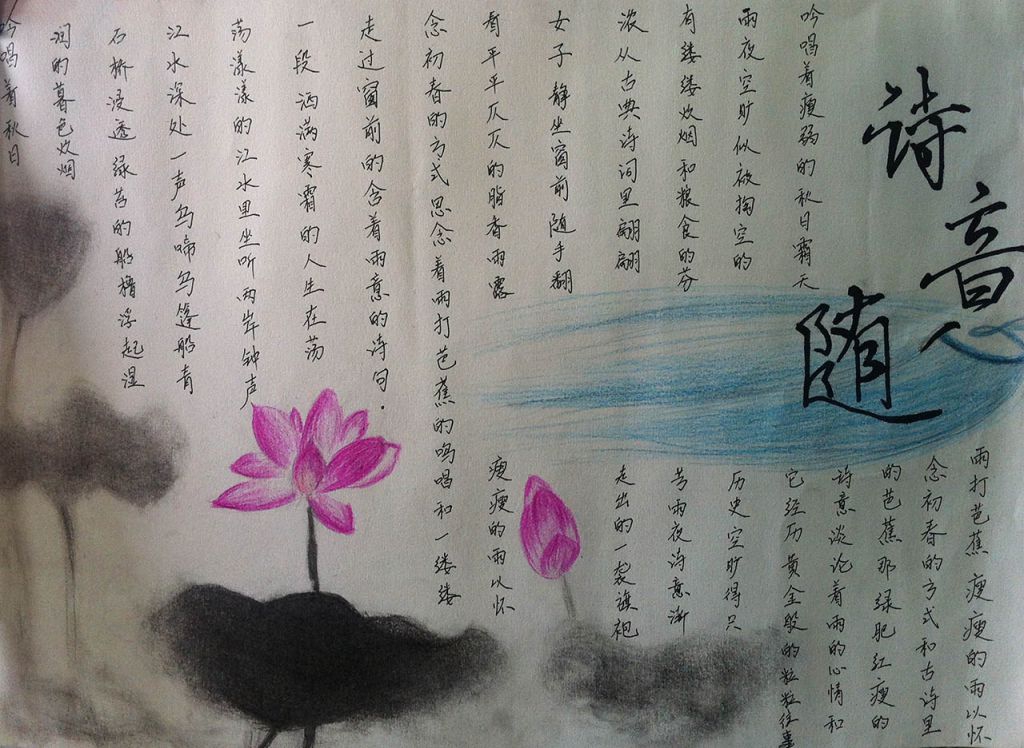 诗意随
雨打芭蕉 瘦瘦的雨以怀
念初春的方式和古诗里
的芭蕉那绿肥红瘦的
诗意谈论着雨的心情和
它经历黄金般的粒粒往事
吟唱着瘦弱的秋日霜天
雨夜空旷似被掏空的
历史空旷得只
有缕缕炊烟和粮食的芬
芳雨夜诗意渐
浓从古典诗词里翩翩
走出的一袭旗袍
女子静坐窗前随手翻
看平平仄仄的脂香雨露
瘦瘦的雨以怀
念初春的方式思念着雨打芭蕉的鸣唱和一缕缕
走过窗前的含着雨意的诗句.
一段洒满寒霜的人生在荡
荡漾漾的江水里坐听两岸钟声
江水深处一声乌啼乌篷船青
石桥浸透绿苔的船橹浮起湿
润的暮色炊烟
吟唱着秋日